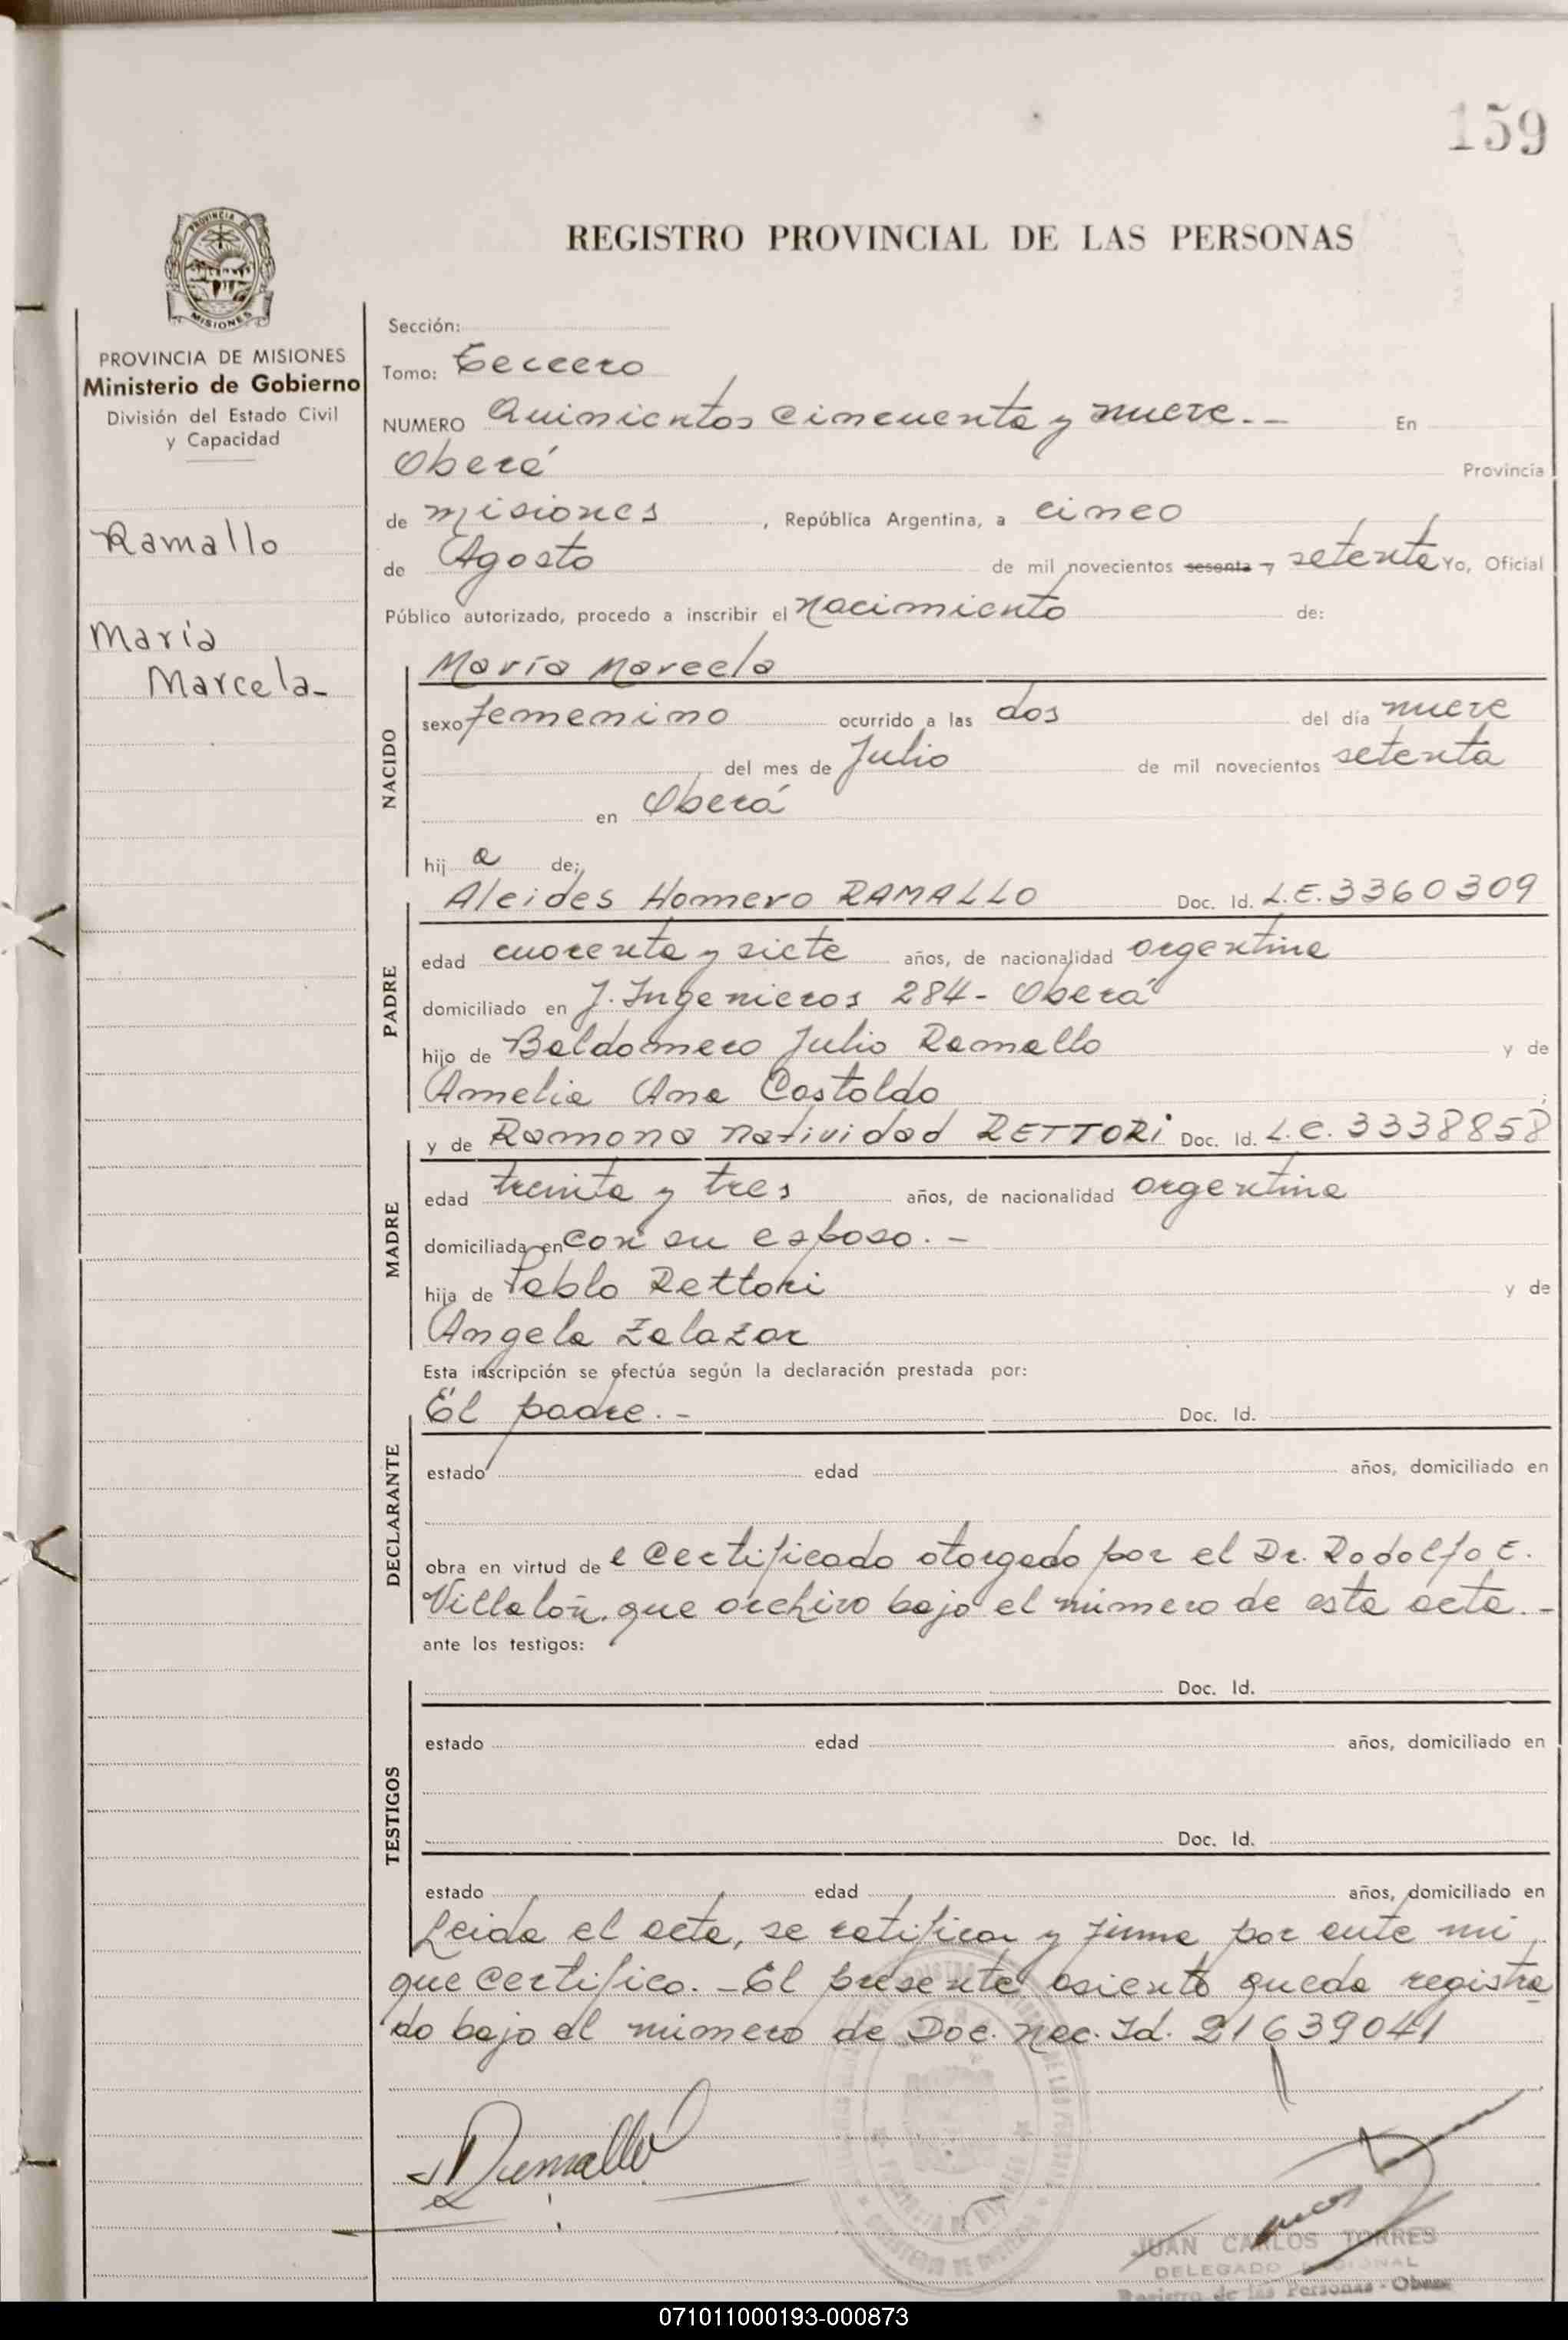 159
REGISTRO PROVINCIAL DE LAS PERSONAS
PROVINCIA
MISIONES
PROVINCIA DE MISIONES
Ministerio de Gobierno
División del Estado Civil
y Capacidad
Ramallo
María
Marcela-
Sección:
Tomo: Tercero
NUMERO Quinientos cincuenta y nueve.-- En
Oberá Provincia
de misiones, República Argentina, a cinco
de Agosto de mil novecientos sesenta y setenta Yo, Oficial
Público autorizado, procedo a inscribir el nacimiento de:
NACIDO
María Marcela
sexo femenino ocurrido a las dos del día nueve
del mes de Julio de mil novecientos setenta
en Oberá
hij a de:
PADRE
Alcides Homero RAMALLO Doc. Id. L.E. 3360309
edad cuarenta y siete años, de nacionalidad argentina
domiciliado en J. Ingenieros 284- Oberá
hijo de Baldomero Julio Ramallo y de
Amelia Ana Castoldo ;
MADRE
y de Ramona Natividad RETTORI Doc. Id. L.C. 3338858
edad treinta y tres años, de nacionalidad argentina
domiciliada en con su esposo.-
hija de Pablo Rettori y de
Angela Zalazar
Esta inscripción se efectúa según la declaración prestada por:
DECLARANTE
El padre.- Doc. Id.
estado edad años, domiciliado en
obra en virtud de l certificado otorgado por el Dr. Rodolfo E.
Villalón, que archivo bajo el número de esta acta.-
ante los testigos:
TESTIGOS
Doc. Id.
estado edad años, domiciliado en
Doc. Id.
estado edad años, domiciliado en
Leida el acta, se ratifica y firma por ante mi
que certifico.-El presente asiento queda registra
do bajo el número de Doc. Nac. Id. 21639041
Ramallo
JUAN CARLOS TORRES
DELEGADO REGIONAL
Registro de las Personas - Oberá
071011000193-000873